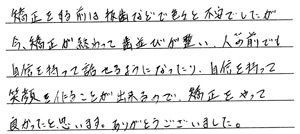 矯正をする前は抜歯などで色々と不安でしたが
今、矯正が終わって歯並びが整い、人の前でも
自信を持って話せるようになったり、自信を持って
笑顔を作ることが出来るので、矯正をやって
良かったと思います。ありがとうございました。